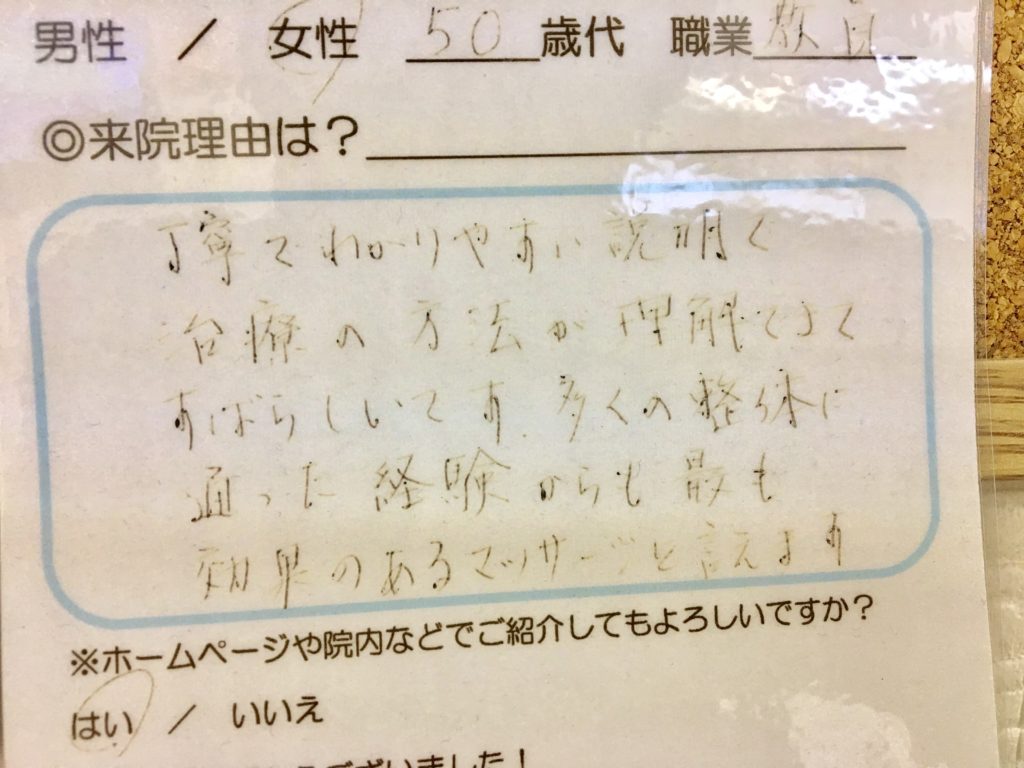 男性 / 女性 50歳代 職業 教員
◎来院理由は?
丁寧でわかりやすい説明で
治療の方法が理解できて
すばらしいです。多くの整体に
通った経験からも最も
効果のあるマッサージと言えます
※ホームページや院内などでご紹介してもよろしいですか?
はい / いいえ
ございました!